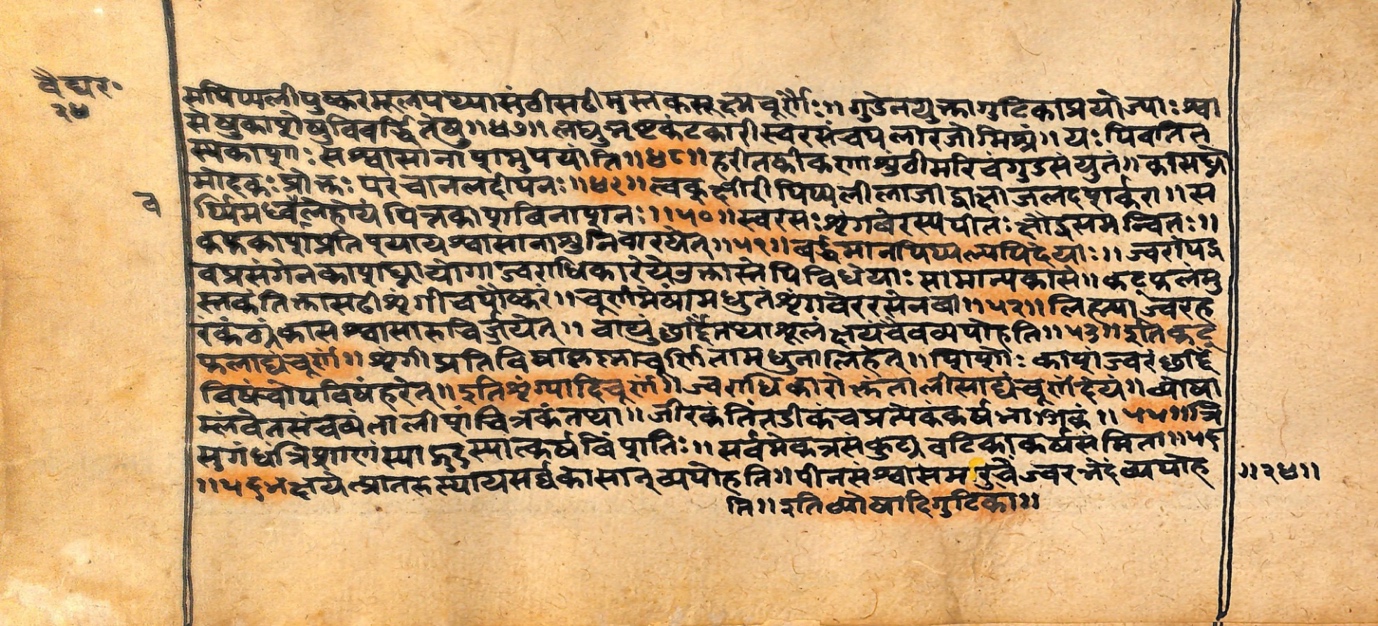 वैद्यर॰
२४
सपिप्पलीपुष्करमूलपथ्यासुंठीसठीमुस्तकसूक्ष्मचूर्णैः॥ गुडेनयुक्तागुटिकाप्रयोज्याः श्वा
सेषुकाशेषुविवर्द्धितेषु॥४७॥ लघुन कंटकारीस्वरसंचपलारजोमिश्रं॥ यः पिबतित
स्यकाशाः सश्वासानाशमुपयांति॥४८॥ हरीतकीकणाशुंठीमरिचंगुडसंयुतं॥ कासघ्नो
मोदकः प्रोक्तः परंचानलदीपनः॥४९॥ त्वकक्षीरीपिप्पलीलाजाद्राक्षाजलदशर्करा॥ स
र्प्पिर्मध्वलेहोयं पित्तकाशविनाशनः॥५०॥ स्वरसः शृंगवेरस्यपीतः क्षौद्रसमन्वितः॥
व
कफकाशंप्रतिश्यायश्वासानाशुनिवारयेत्॥५१॥ वर्द्धमानपिप्पल्यपिदेयाः॥ ज्वरोपद्र
वप्रसंगेनकाशघ्नायोगाज्वराधिकारेयेउक्तास्तेपिविधेयाः सामान्यकासे॥ कट्फलंमु
स्तकंतिक्तासठीशृंगीचपौष्करं॥ चूर्णमेषांमधुतंशृंगवेररसेनवा॥५२॥ लिह्या ज्वरह
रकंठ्यकासश्वासारुचिर्जयेत्॥ वायुंछर्दितथाशूलंक्षयंचैवव्यपोहति॥५३॥ इतिकट्
फलाद्यंचूर्णं॥ शृंगीप्रतिविषाकृष्णाचूर्णितामधुनालिहेत्॥ शिशोः काशज्वरछर्दि
विषंचोपविषंहरेत्॥ इतिशृंग्यादिचूर्णं॥ ज्वराधिकारोक्तंतालीसाद्यंचूर्णंदेयं॥ व्योषा
म्लवेतसंचव्यंतालीशंचित्रकंतथा॥ जीरकंतिंतडीकंचप्रत्येकंकर्षभागिकं॥५५॥ त्रि
सुगंधत्रिशाणंस्याद्गुडस्यात्कर्षविंशतिः॥ सर्वमेकत्रसंकुट्यवटिकाकर्षसंमिता॥५६
॥५६भक्षयेत्प्रातरुत्थायसर्वकासान्व्यपोहति॥ पीनसश्वासमरुचिंज्वरभेदंव्यपोह
॥२४॥
ति॥ इतिव्योषादिगुटिका॥